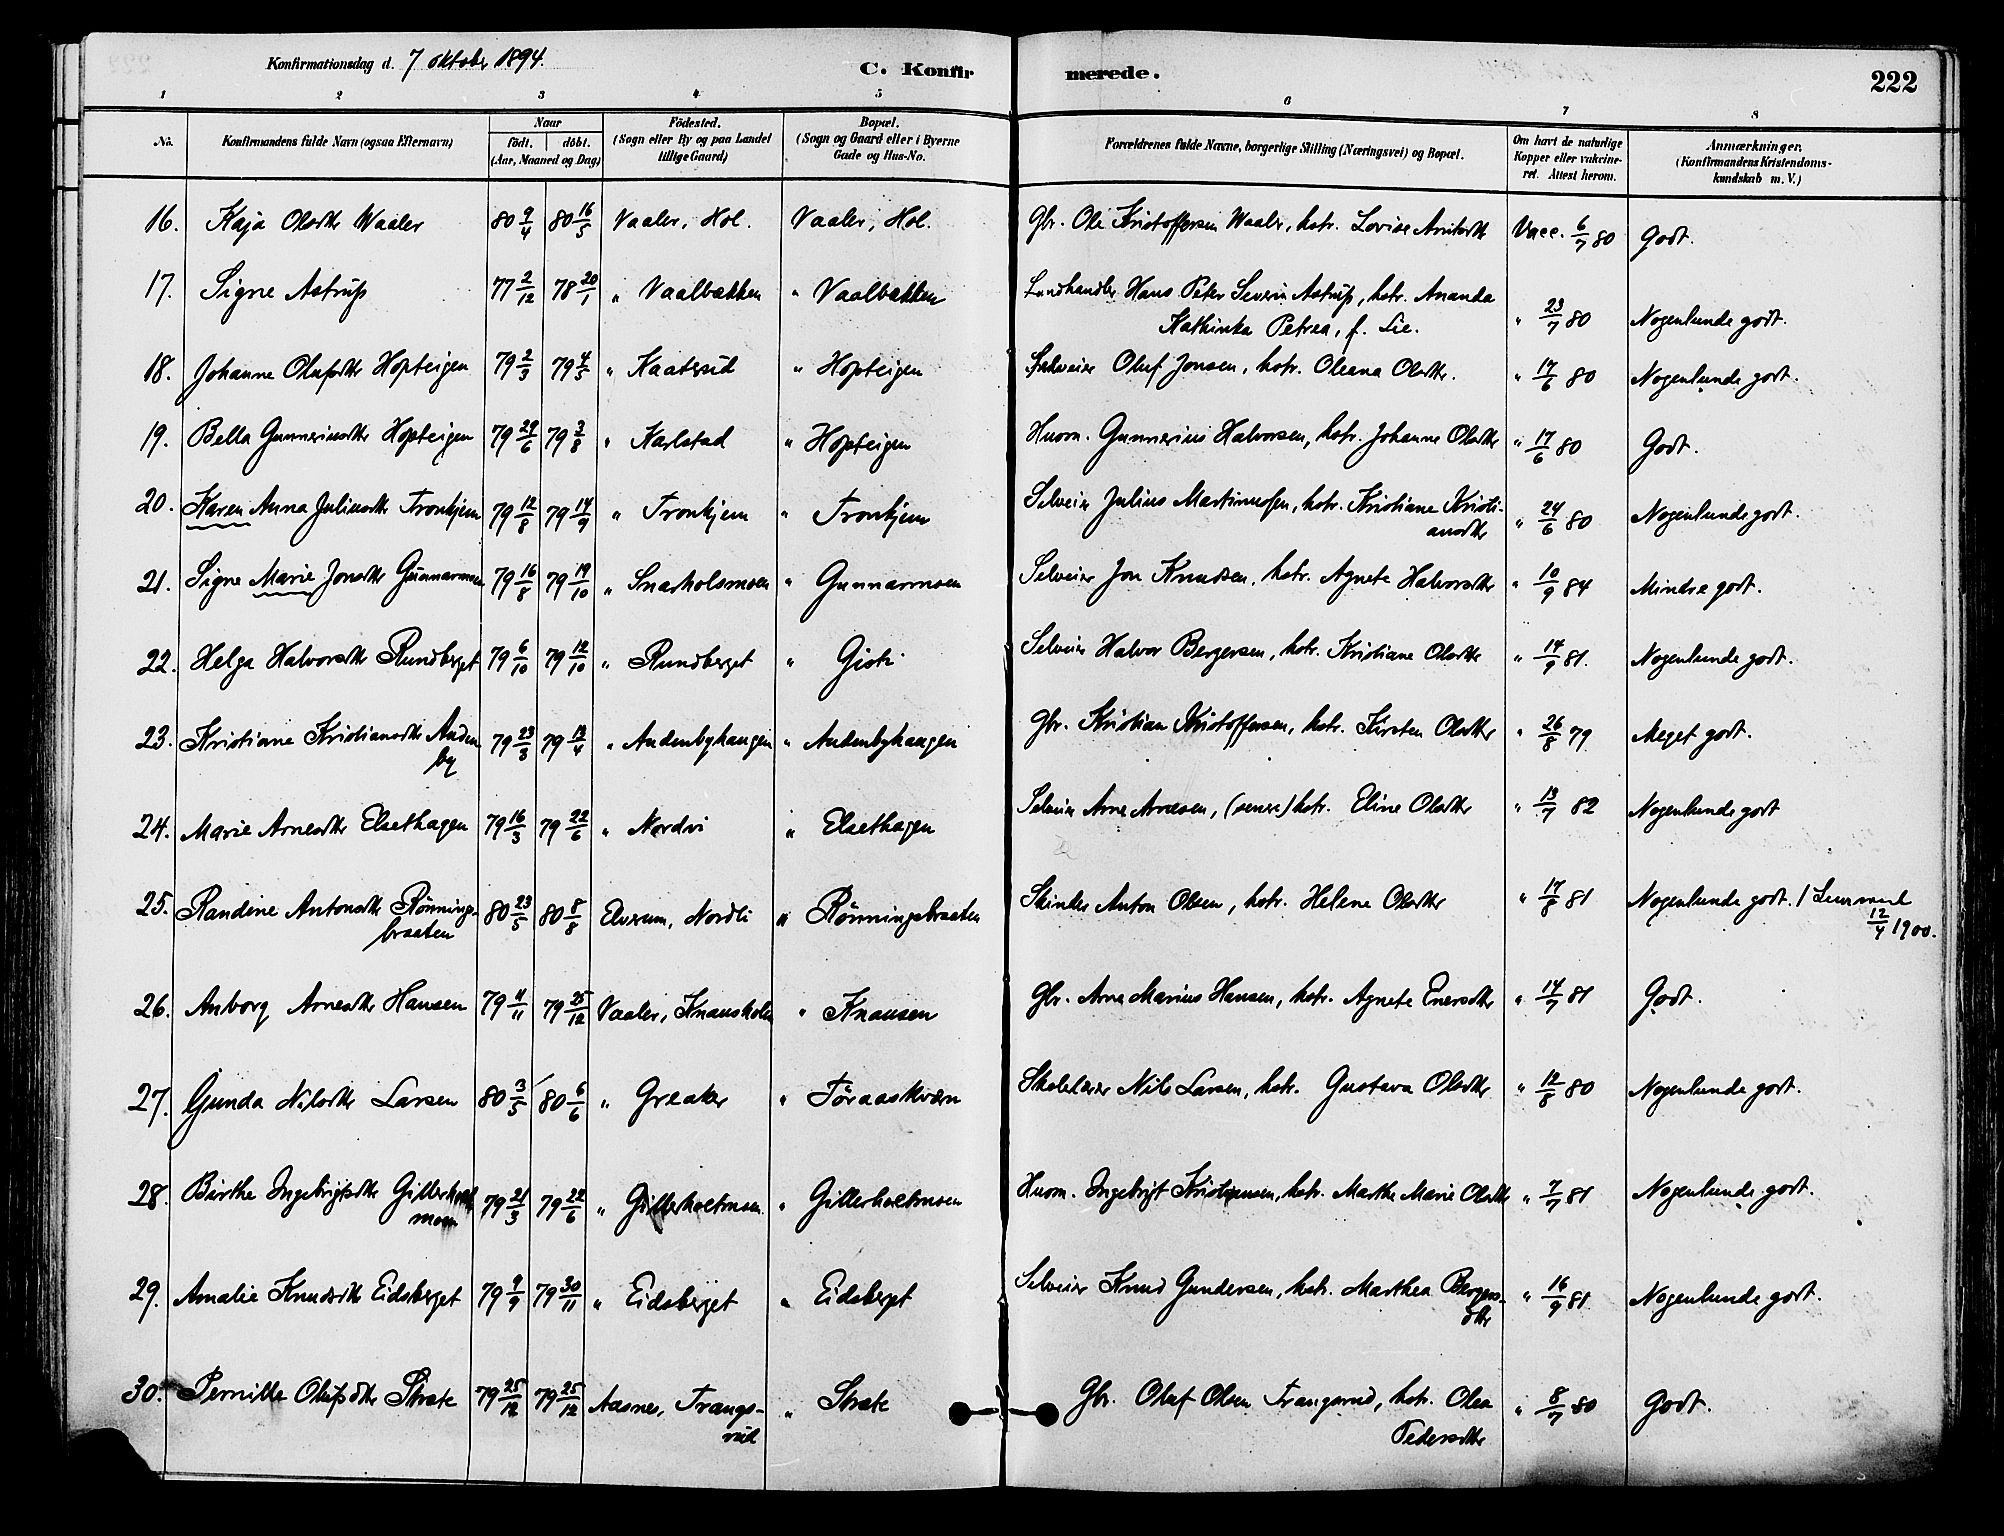 Konfirmationsdag d. 7 oktober 1894.
C. Konfirmerede.
222
1 2 3 4 5 6 7 8
No. Konfirmandens fulde Navn (ogsaa Efternavn) Naar födt. döbt. (Aar, Maaned og Dag) Födested. (Sogn eller By og paa Landet tillige Gaard) Bopæl. (Sogn og Gaard eller i Byerne Gade og Hus-No. Forældrenes fulde Navne, borgerlige Stilling (Næringsvei) og Bopæl. Om havt de naturlige Kopper eller vakcineret. Attest herom. Anmærkninger. (Konfirmandens Kristendomskundskab m. V.)
16. Kaja Olsdtr Waaler 80 9/4 80 16/5 Vaaler, Hol. Vaaler, Hol. Gbr. Ole Kristoffersen Waaler, hstr. Lovise Arntsdtr Vacc. 6/7 80 Godt.
17. Signe Astrup 77 2/12 78 20/1 " Vaalbækken " Vaalbækken Landhandler Hans Peter Severin Astrup, hstr. Ananda
Kathinka Petrea, f. Lie. " 23/7 80 Nogenlunde godt.
18. Johanne Olufsdtr Hopteigen 79 2/3 79 4/5 " Kaatsrud " Hopteigen Selveier Oluf Jonsen, hstr. Oleana Olsdtr. " 17/6 80 Nogenlunde godt.
19. Bella Gunneriusdtr Hopteigen 79 29/6 79 3/8 " Karlstad " Hopteigen Husm. Gunnerius Halvorsen, hstr. Johanne Olsdtr " 17/6 80 Godt.
20. Karen Anna Juliusdtr Tronkjem 79 12/8 79 14/9 " Tronkjem " Tronkjem Selveier Julius Martinusen, hstr. Kristiane Kristi-
ansdtr " 24/6 80 Nogenlunde godt.
21. Signe Marie Jonsdtr Gunnarmoen 79 16/8 79 19/10 " Snarholsmoen " Gunnarmoen Selveier Jon Knudsen, hstr. Agnete Halvorsdtr " 10/9 84 Mindre godt.
22. Helga Halvorsdtr Rundberget 79 6/10 79 12/10 " Rundberget " Selveier Halvor Bergersen, hstr. Kristiane Olsdtr " 14/9 81. Nogenlunde godt.
23. Kristiane Kristiansdtr Auden-
by 79 23/3 79 13/4 " Audenbyhaugen " Audenbyhaugen Gbr. Kristian Kristoffersen, hstr. Kirsten Olsdtr " 26/8 79 Meget godt.
24. Marie Arnesdtr Elsethagen 79 16/3 79 22/6 " Nordvi " Elsethagen Selveier Arne Arnesen, (senere) hstr. Eline Olsdtr " 13/7 82 Nogenlunde godt
25. Randine Antonsdtr Rönnings-
braaten 80 23/5 80 8/8 Elverum, Nordli " Rönningsbraaten Anton Olsen, hstr. Helene Olsdtr " 17/8 81 Nogenlunde godt.
12/4 1900.
26. Anborg Arnesdtr Hansen 79 4/11 79 25/12 Vaaler, Knausholen " Knausen Gbr. Arne Marius Hansen, hstr. Agnete Enersdtr " 14/7 81 Godt.
27. Gunda Nilsdtr Larsen 80 3/5 80 6/6 " Greaker " Föraaskværn Skolelærer Nils Larsen, hstr. Gustava Olsdtr " 12/8 80 Nogenlunde godt.
28. Birthe Ingebrigtsdtr Gillerholt-
moen 79 21/3 79 22/6 " Gillerholtmoen. " Gillerholtmoen Husm. Ingebrigt Kristiansen, hstr. Marthe Marie Olsdtr " 7/7 81 Nogenlunde godt.
29. Amalie Knudsdtr Eidsberget 79 9/9 79 30/11 " Eidsberget " Eidsberget Selveier Knud Gundersen, hstr. Marthea Bergers-
dtr " 16/9 81 Nogenlunde godt.
30. Pernille Olufsdtr Strate 79 25/12 79 25/12 Aasnes, Trangs-
rud " Strate Gbr. Oluf Olsen Trangsrud, hstr. Olea
Pedersdtr " 8/7 80 Godt.